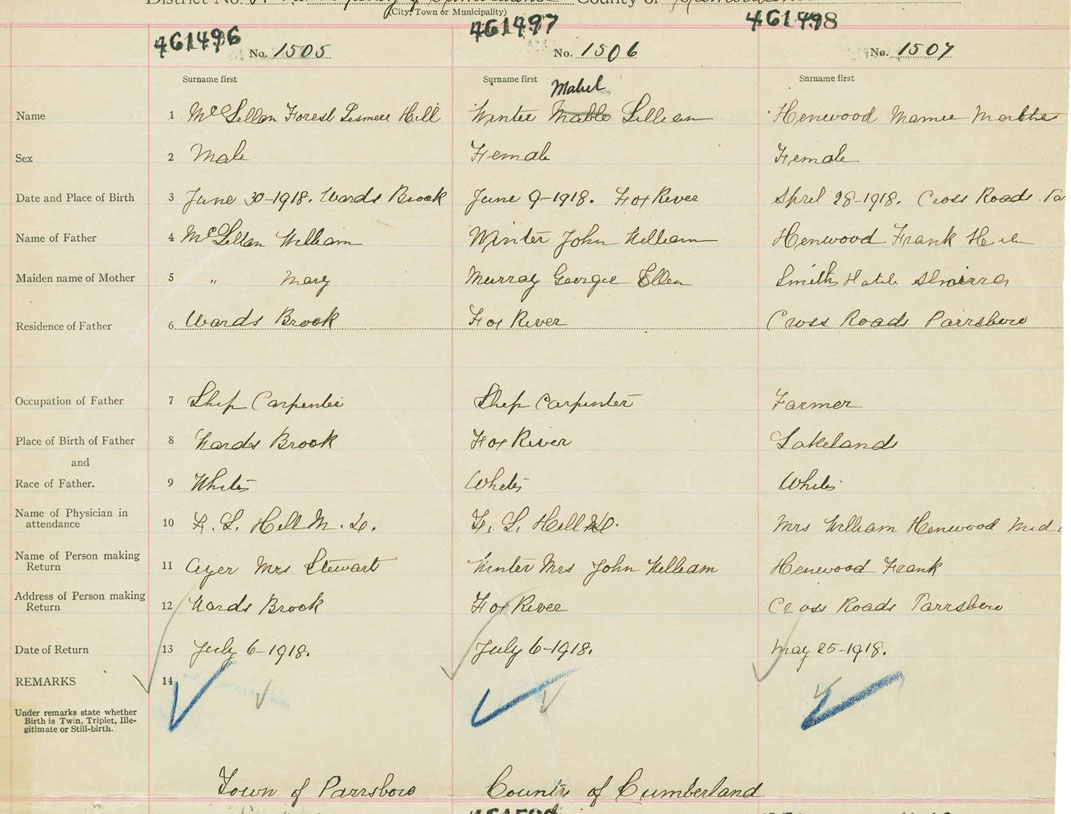 District No. County of
(City, Town or Municipality)
461496 461497 461498
No. 1505 No. 1506 No. 1507
Surname first Surname first Surname first
Mabel
Name 1 McLellan Forest Hill Winter Mable Lillian Henwood Mamie Martha
Sex 2 Male Female Female
Date and Place of Birth 3 June 30-1918. Wards Brook June 9-1918. Fox River April 28-1918. Cross Roads
Name of Father 4 McLellan William Winter John William Henwood Frank
Maiden name of Mother 5 " Mary Murray Georgie Ellen Smith
Residence of Father 6 Wards Brook Fox River Cross Roads Parrsboro
Occupation of Father 7 Ship Carpenter Ship Carpenter Farmer
Place of Birth of Father 8 Wards Brook Fox River Lakelands
and
Race of Father. 9 White White White
Name of Physician in
attendance 10 F. L. Hill M.D. F. L. Hill M.D. Mrs William Henwood Mid
Name of Person making
Return 11 Ayer Mrs Stewart Winter Mrs John William Henwood Frank
Address of Person making
Return 12 Wards Brook Fox River Cross Roads Parrsboro
Date of Return 13 July 6-1918. July 6-1918. May 25-1918.
REMARKS 14
Under remarks state whether
Birth is Twin, Triplet, Ille-
gitimate or Still-birth.
Town of Parrsboro County of Cumberland